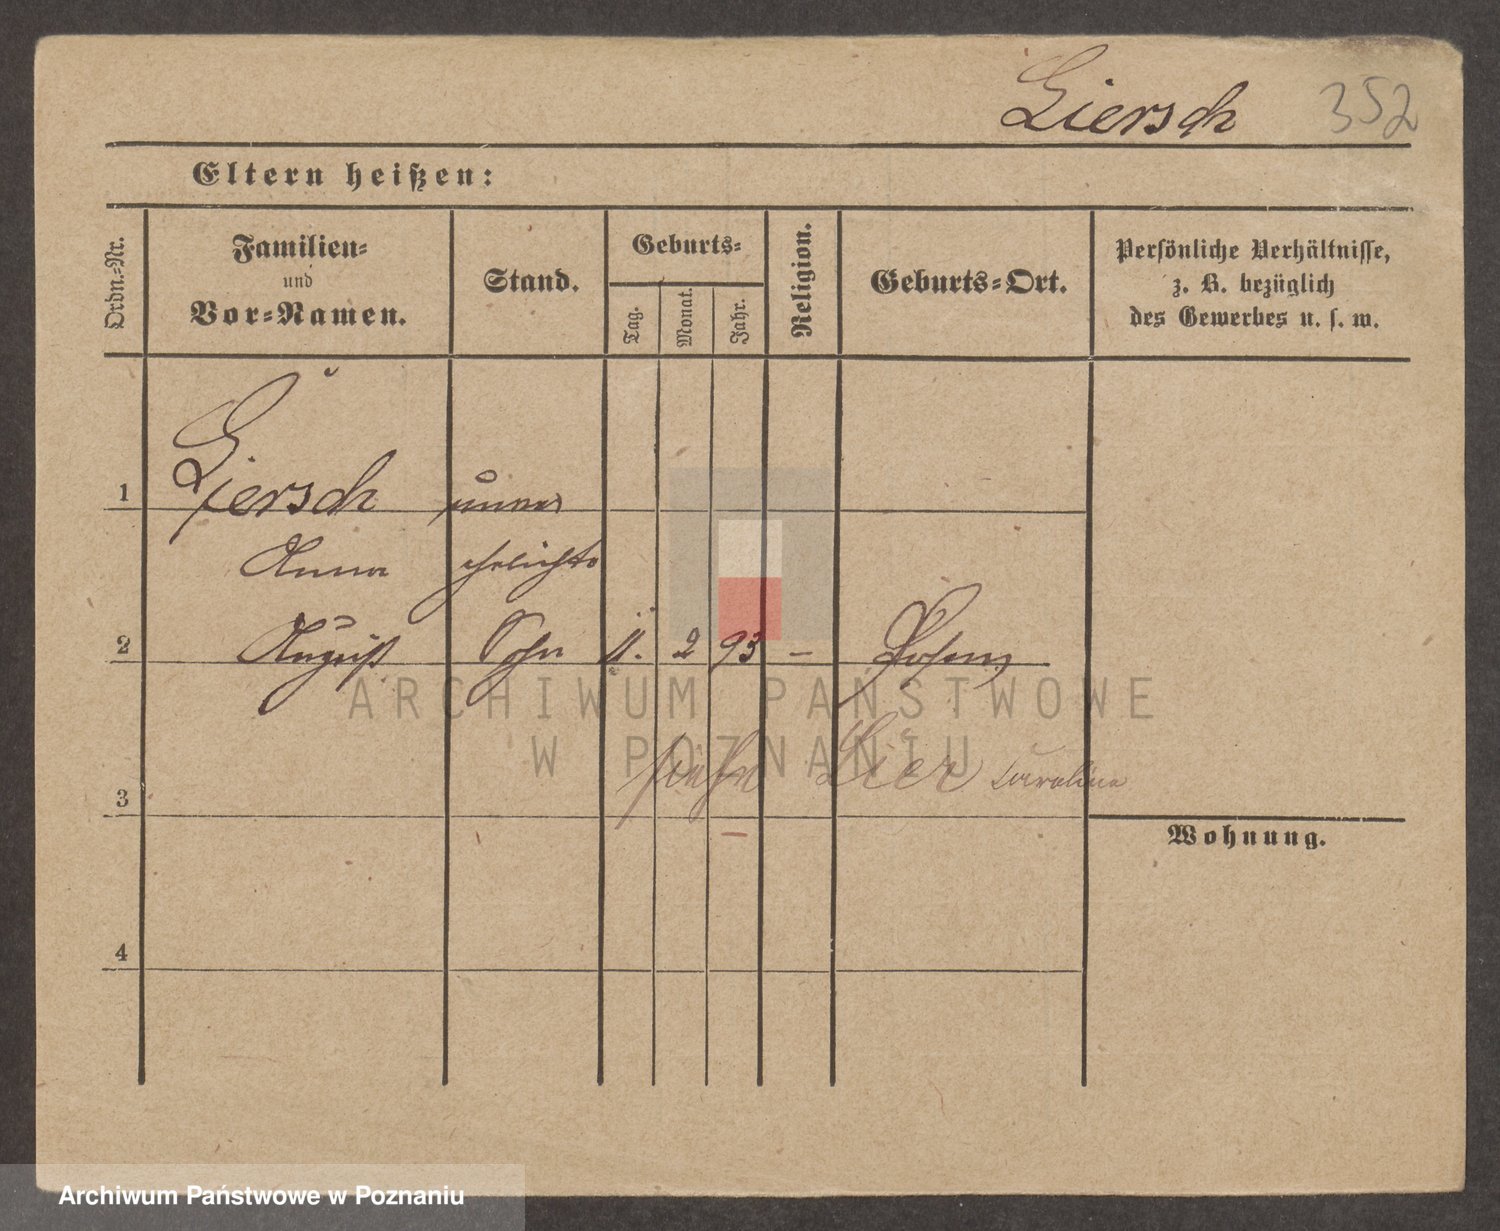 Giersch 352
Eltern heißen:
Ordn.-Nr.
Familien-
und
Vor-Namen.
Stand.
Geburts-
Tag.
Monat.
Jahr.
Religion.
Geburts-Ort.
Persönliche Verhältnisse,
z. B. bezüglich
des Gewerbes u. s. w.
1 Giersch unver
Anna ehelichte
2 August Sohn 11. 2 93 – Posen
ARCHIWUM PAŃSTWOWE
W POZNANIU
siehe Lier Caroline
3
Wohnung.
4
Archiwum Państwowe w Poznaniu